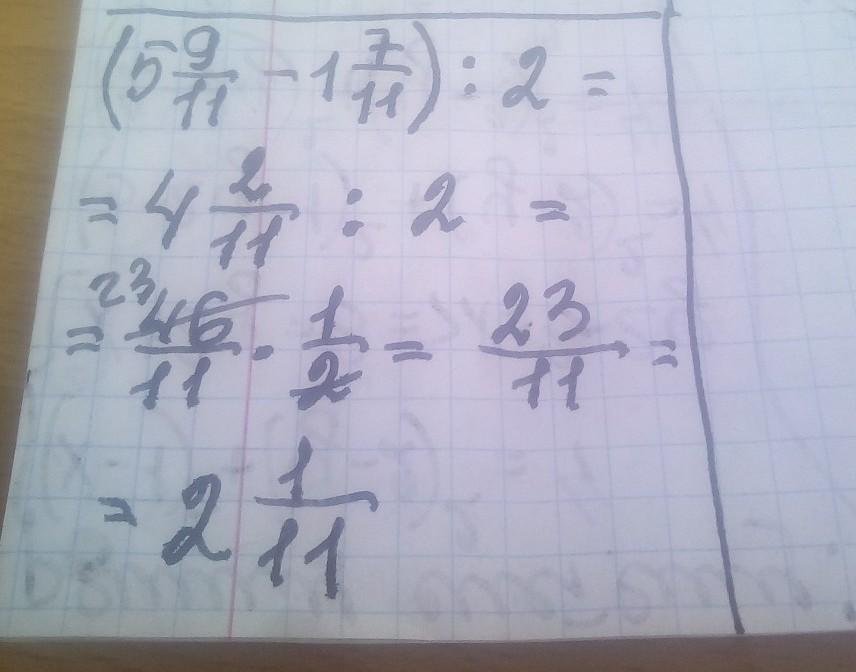 (5 9/11 - 1 7/11) : 2 =
= 4 2/11 : 2 =
= 23 46/11 · 1/2 = 23/11 =
= 2 1/11